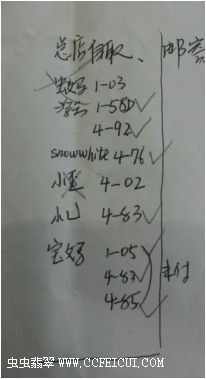 总店自取、
邮寄
虫妈 1-03
1-58D
4-92
snowwhite 4-76
小 4-02
小山 4-83
宝妈 1-05
4-87
4-85
未付
虫虫翡翠 WWW.CCFEICUI.COM